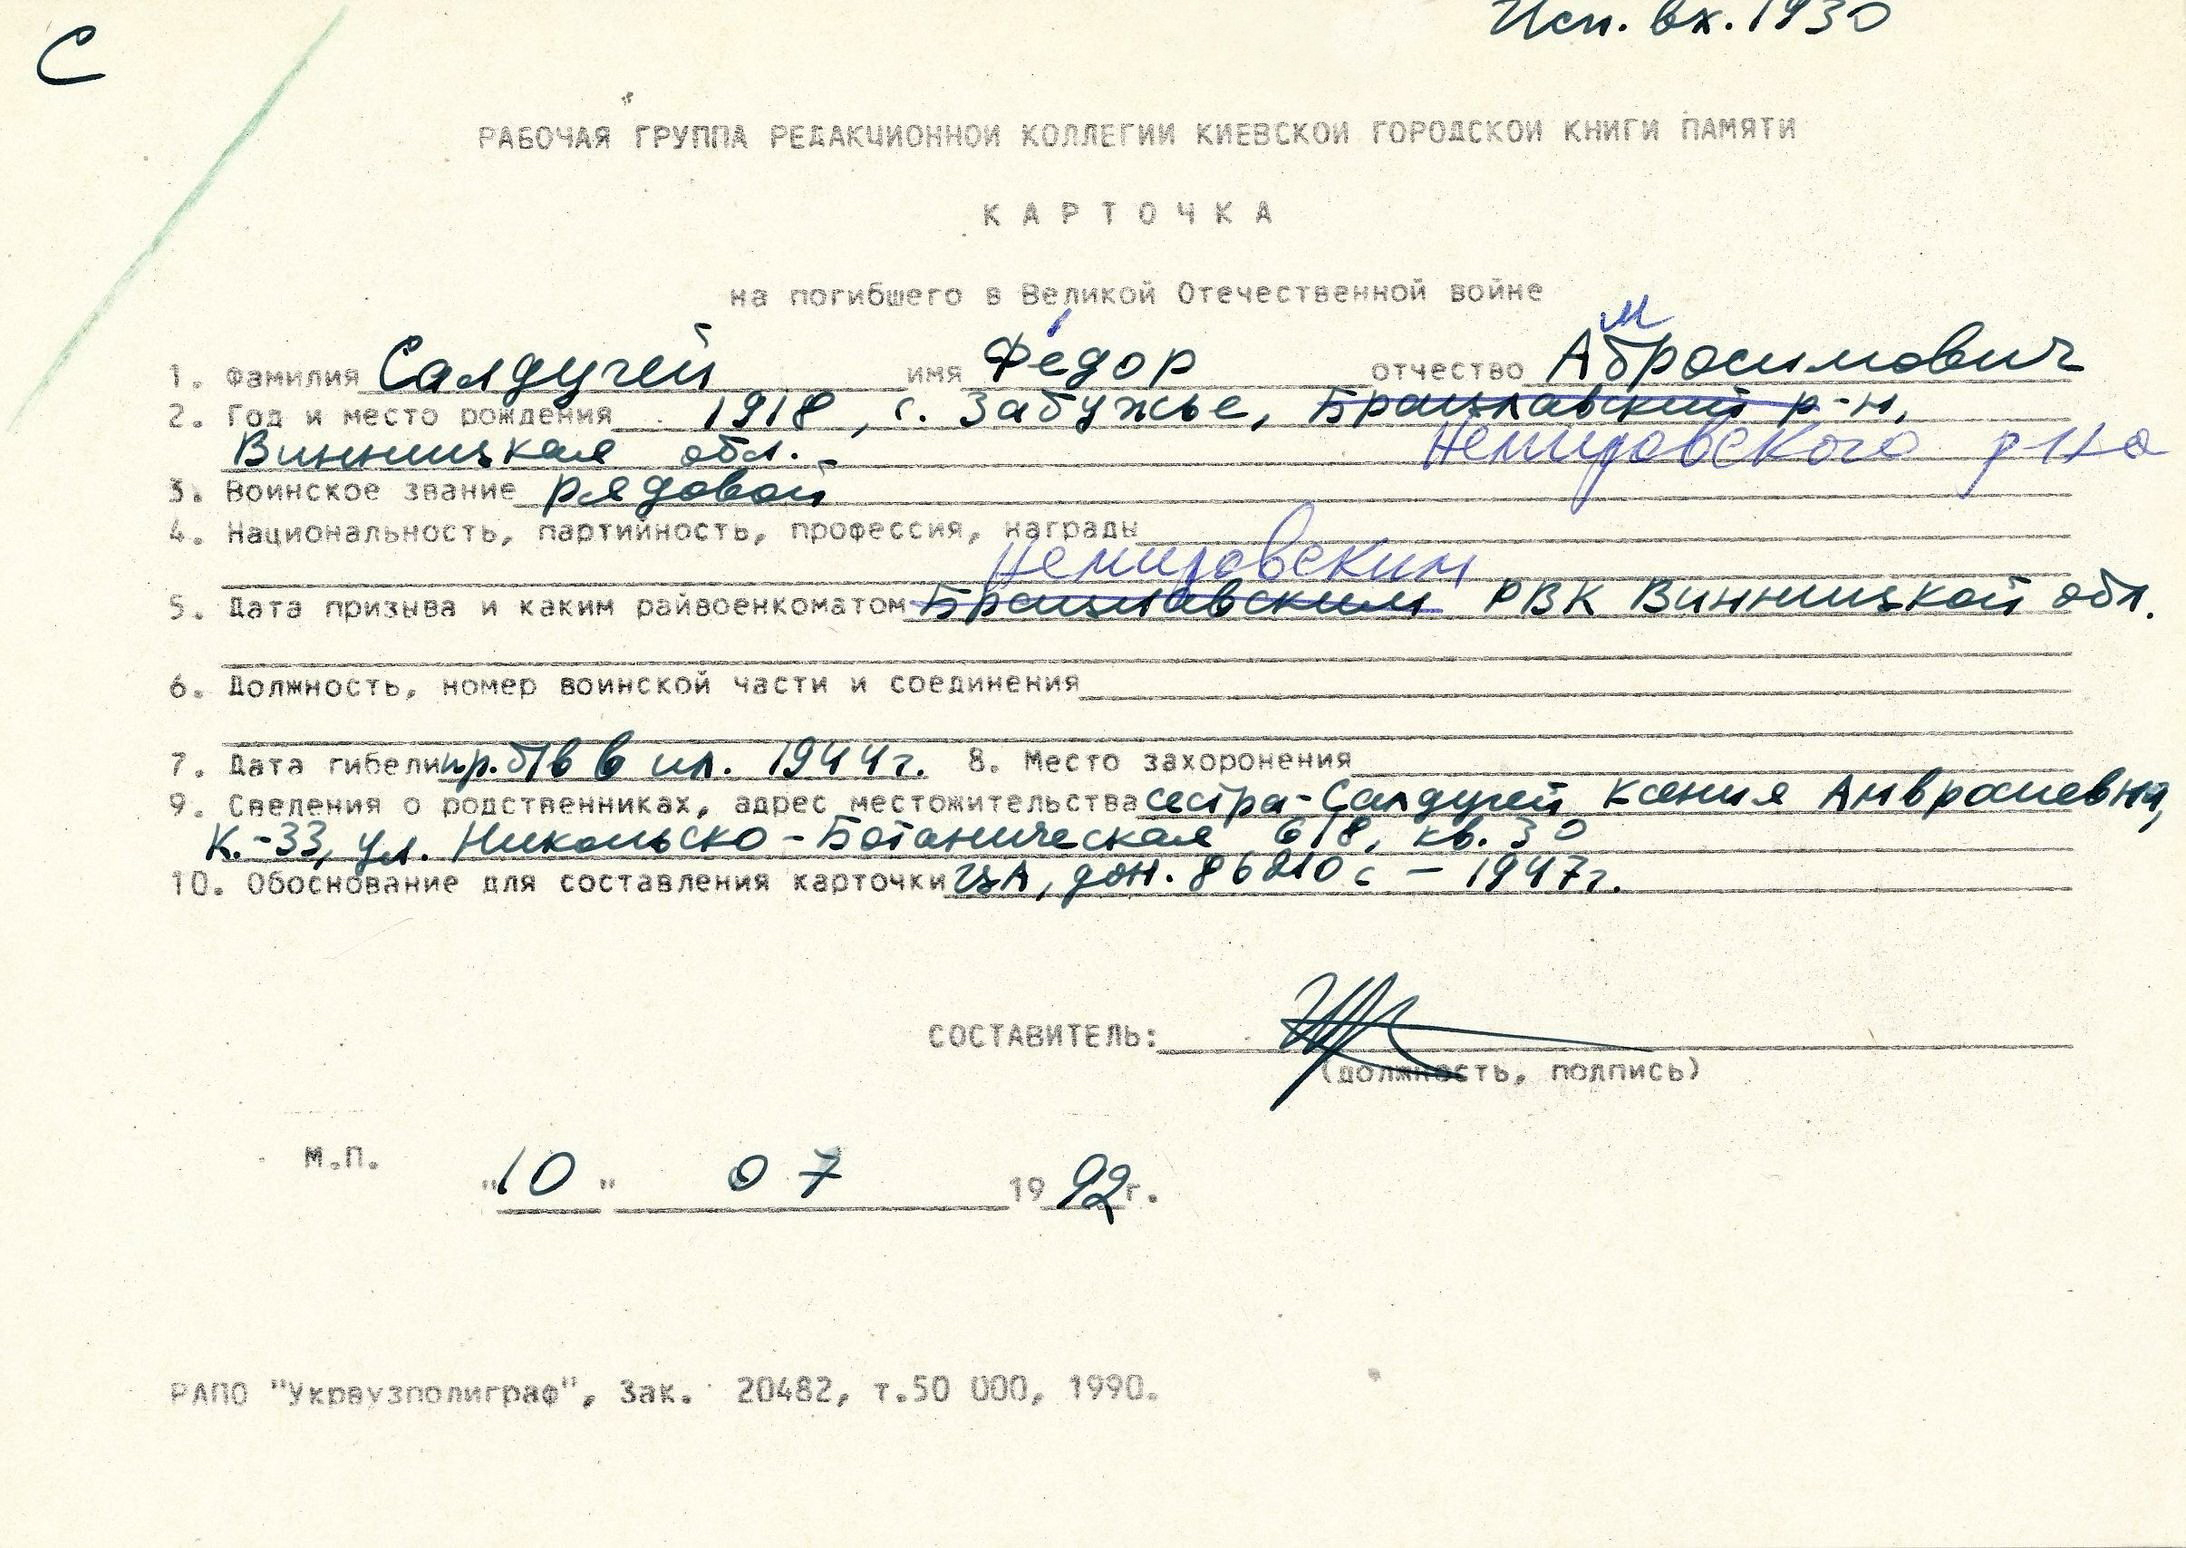 Исп. вх. 1930
С
РАБОЧАЯ ГРУППА РЕДАКЦИОННОЙ КОЛЛЕГИИ КИЕВСКОЙ ГОРОДСКОЙ КНИГИ ПАМЯТИ
КАРТОЧКА
на погибшего в Великой Отечественной войне
м
1. Фамилия Салдугей имя Фёдор отчество Абросимович
2. Год и место рождения 1918, с. Забужье, Брацлавский р-н,
Винницкая обл. Немировского р-на
3. Воинское звание рядовой
4. Национальность, партийность, профессия, награды
Немировским
5. Дата призыва и каким райвоенкоматом Брацлавским РВК Винницкой обл.
6. Должность, номер воинской части и соединения
7. Дата гибели пр. б/в в ил. 1944г. 8. Место захоронения
9. Сведения о родственниках, адрес местожительства сестра-Салдугей Ксения Амвросиевна,
К.-33, ул. Никольско-Ботаническая 6/8, кв. 30
10. Обоснование для составления карточки ЦА, дон. 86210с - 1947г.
СОСТАВИТЕЛЬ:
(должность, подпись)
М.П.
"10" 07 1992г.
РАПО "Укрвузполиграф", Зак. 20482, т.50 000, 1990.